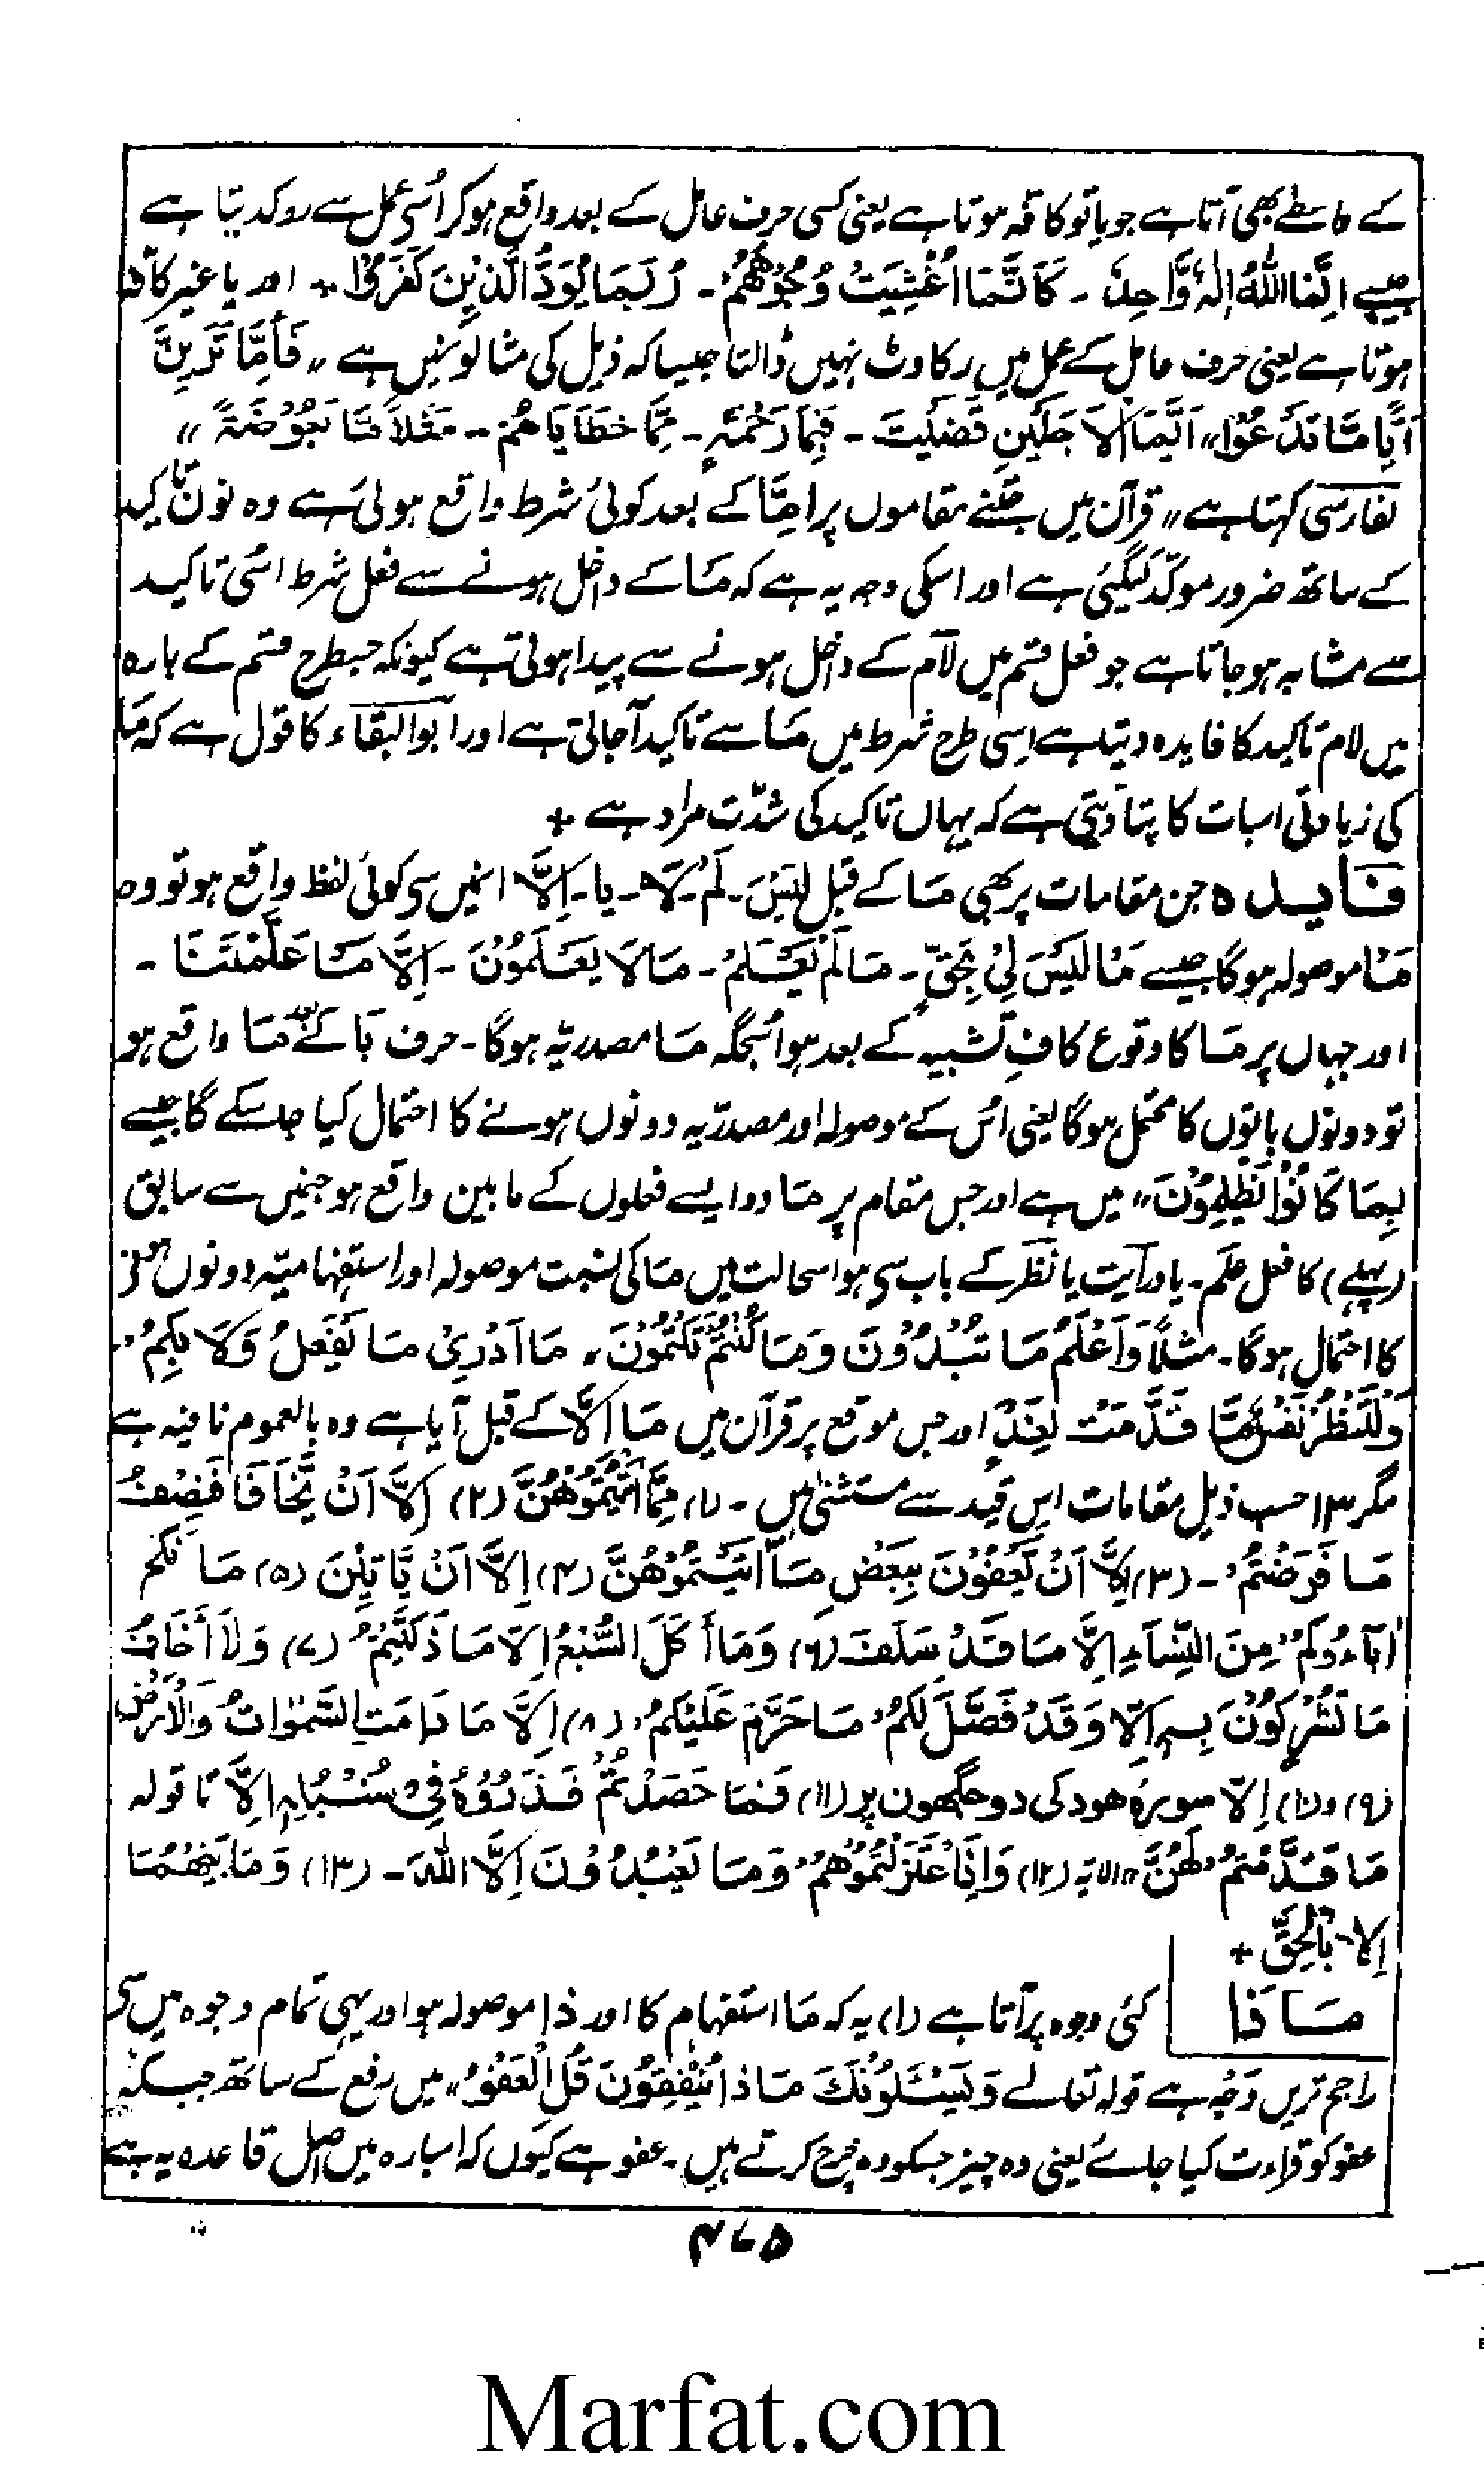 کے واسطے بھی آتا ہے جو یا تو کافہ ہوتا ہے یعنی کسی حرف عامل کے بعد واقع ہو کر اُسی عمل سے روکدیتا ہے
جیسے اِنَّمَا اللّٰهُ اِلٰهٌ وَّاحِدٌ ۔ کَاَنَّمَا اُغْشِیَتْ وُجُوْهُهُمْ ۔ رُبَمَا یَوَدُّ الَّذِیْنَ کَفَرُوْا + اور یا غیر کافہ
ہوتا ہے یعنی حرف عامل کے عمل میں رکاوٹ نہیں ڈالتا جیسا کہ ذیل کی مثالونمیں ہے ،، فَاِمَّا تَرَیِنَّ
اَیًّا مَّا تَدْعُوْا ،، اَیَّمَا الْاَجَلَیْنِ قَضَیْتُ ۔ فَبِمَا رَحْمَةٍ ۔ مِمَّا خَطَایَاهُمْ ۔ مَثَلًا مَّا بَعُوْضَةً ،،
فارسی کہتا ہے ،، قرآن میں جتنے مقاموں پر اِمَّا کے بعد کوئی شرط واقع ہوئی ہے وہ نون تاکید
کے ساتھ ضرور موکّد کیگئی ہے اور اسکی وجہ یہ ہے کہ مَا کے داخل ہونے سے فعل شرط اسی تاکید
سے مشابہ ہو جاتا ہے جو فعل قسم میں لام کے داخل ہونے سے پیدا ہوتی ہے کیونکہ جسطرح قسم کے بارہ
میں لام تاکید کا فایدہ دیتا ہے اسی طرح شرط میں مَا سے تاکید آجاتی ہے اور ابوالبقاء کا قول ہے کہ مَا
کی زیادتی اسبات کا پتا دیتی ہے کہ یہاں تاکید کی شدّت مراد ہے +
فایدہ جن مقامات پر بھی مَا کے قبل لَیْسَ ۔ لَمْ ۔ لَا ۔ یا ۔ اِلَّا انمیں سی کوئی لفظ واقع ہو تو وہ
مَا موصولہ ہوگا جیسے مَا لَیْسَ لِیْ بِحَقٍّ ۔ مَا لَمْ یَعْلَمْ ۔ مَا لَا یَعْلَمُوْنَ ۔ اِلَّا مَا عَلَّمْتَنَا ۔
اور جہاں پر مَا کا وقوع کافِ تشبیہ کے بعد ہو اُسجگہ مَا مصدریّہ ہوگا ۔ حرف بَا کے بعد مَا واقع ہو
تو دونوں باتوں کا محتمل ہوگا یعنی اُس کے موصولہ اور مصدریّہ دونوں ہونے کا احتمال کیا جا سکے گا جیسے
بِمَا کَانُوْا یَظْلِمُوْنَ ،، میں ہے اور جس مقام پر مَا دو ایسے فعلوں کے مابین واقع ہو جنمیں سے سابق
(پہلے) کا فعل عَلِمَ ۔ یا درایت یا نَظَر کے باب سی ہو اسحالت میں مَا کی نسبت موصولہ اور استفہامیّہ دونوں ہونے
کا احتمال ہوگا ۔ مثلاً وَاَعْلَمُ مَا تُبْدُوْنَ وَمَا کُنْتُمْ تَکْتُمُوْنَ ،، مَا اَدْرِیْ مَا یُفْعَلُ وَلَا بِکُمْ ،،
وَلْتَنْظُرْ نَفْسٌ مَّا قَدَّمَتْ لِغَدٍ اور جس موقع پر قرآن میں مَا اِلَّا کے قبل آیا ہے وہ بالعموم نافیہ ہے
مگر ۱۳ حسب ذیل مقامات اس قید سے مستثنٰی ہیں ۔ (۱) مِمَّا اٰتَیْتُمُوْهُنَّ (۲) اِلَّا اَنْ یَّخَافَا فَنِصْفُ
مَا فَرَضْتُمْ ۔ (۳) اِلَّا اَنْ یَّعْفُوْنَ بِبَعْضِ مَا اٰتَیْتُمُوْهُنَّ (۴) اِلَّا اَنْ یَّاْتِیْنَ (۵) مَا نَکَحَ
اٰبَاءُوکُمْ مِنَ النِّسَاءِ اِلَّا مَا قَدْ سَلَفَ (۶) وَمَا أَکَلَ السَّبُعُ اِلَّا مَا ذَکَّیْتُمْ (۷) وَلَا أَخَافُ
مَا تُشْرِکُوْنَ بِهٖ اِلَّا وَقَدْ فَصَّلَ لَکُمْ مَا حَرَّمَ عَلَیْکُمْ (۸) اِلَّا مَا دَامَتِ السَّمٰوَاتُ وَالْاَرْضُ
(۹) و (۱۰) اِلَّا سورۂ ھود کی دو جگھون پر (۱۱) فَمَا حَصَدْتُّمْ فَذَرُوْهُ فِیْ سُنْبُلِهٖ اِلَّا تا قولہ
مَا قَدَّمْتُمْ لَهُنَّ ،، الآیہ (۱۲) وَاِذِ اعْتَزَلْتُمُوْهُمْ وَمَا یَعْبُدُوْنَ اِلَّا اللّٰهَ ۔ (۱۳) وَمَا بَیْنَهُمَا
اِلَّا بِالْحَقِّ +
مَاذَا کئی وجوہ پر آتا ہے (۱) یہ کہ مَا استفہام کا اور ذا موصولہ ہو اور یہی تمام وجوہ میں سی
راجح ترین وجہ ہے قولہ تعالےٰ وَیَسْئَلُوْنَكَ مَاذَا یُنْفِقُوْنَ قُلِ الْعَفْوُ ،، میں رفع کے ساتھ جبکہ
عفو کو قراءت کیا جائے یعنی وہ چیز جسکو وہ خرچ کرتے ہیں ۔ عفو ہے کیوں کہ اسبارہ میں اصل قاعدہ یہ ہے
۴۷۵
Marfat.com